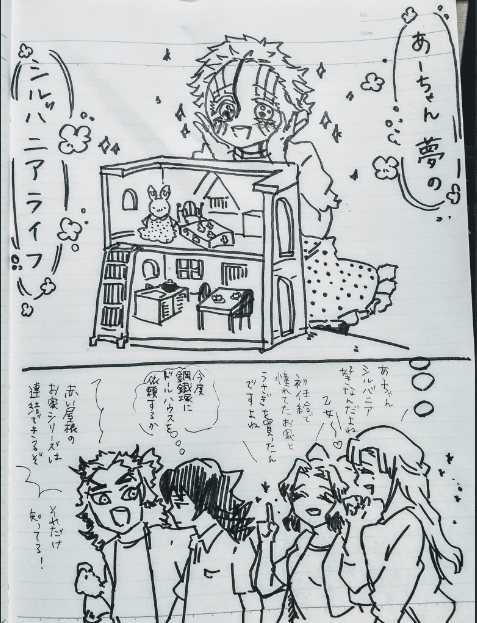 あーちゃん 夢の
シルバニアライフ
あーちゃん
シルバニア
好きなんだよね
乙女〜♡
初任給で
憧れたお家と
うさぎを買ったん
ですよね
今度
鋼鐵塚に
ドールハウスを
依頼するか
赤い屋根の
お家シリーズは
連結できるぞ
それだけ
知ってる!